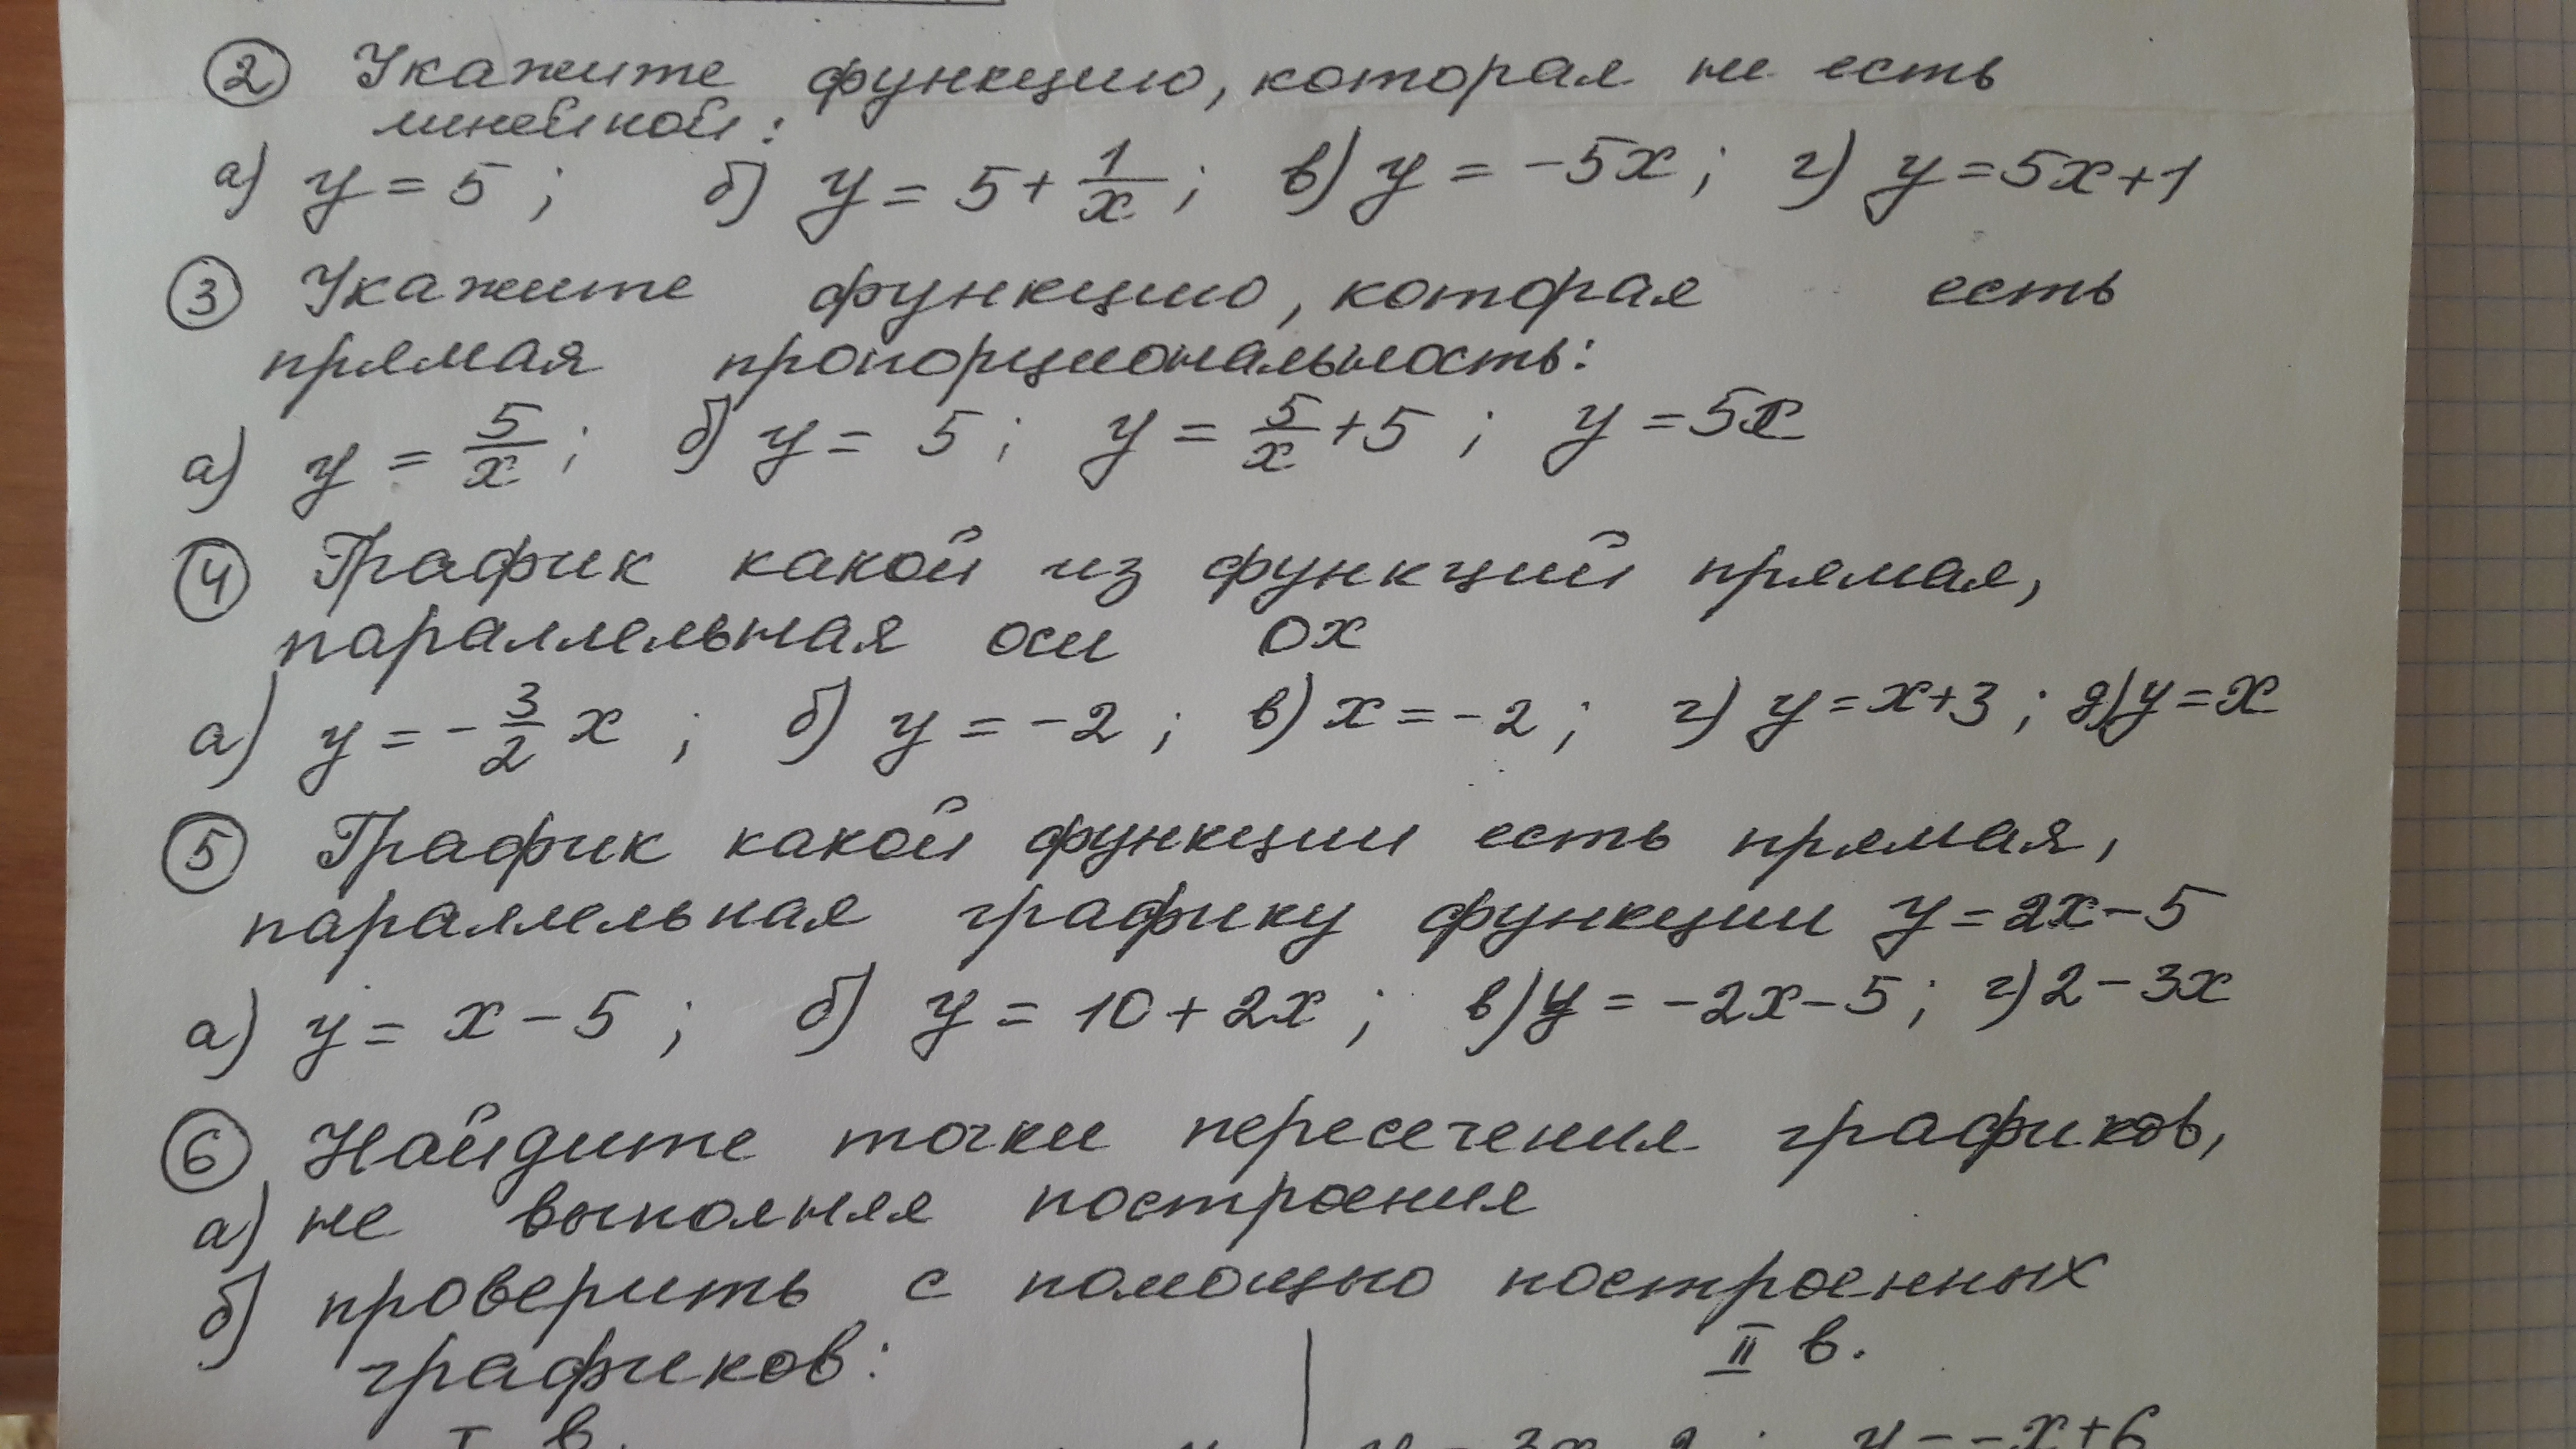 2 Укажите функцию, которая не есть
линейной:
а) y = 5 ; б) y = 5 + 1/x ; в) y = -5x ; г) y = 5x+1
3 Укажите функцию, которая есть
прямая пропорциональность:
а) y = 5/x ; б) y = 5 ; y = 5/x + 5 ; y = 5x
4 График какой из функций прямая,
параллельная оси OX
а) y = - 3/2 x ; б) y = -2 ; в) x = -2 ; г) y = x+3 ; д) y = x
5 График какой функции есть прямая,
параллельная графику функции y = 2x-5
а) y = x - 5 ; б) y = 10 + 2x ; в) y = -2x-5 ; г) 2 - 3x
6 Найдите точки пересечения графиков,
а) не выполняя построения
б) проверить с помощью построенных
графиков:
II в.
I в.
y = -x+6